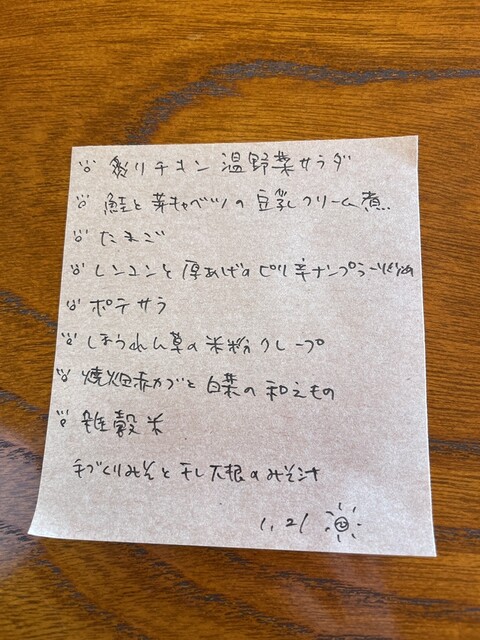 炙りチキン 温野菜サラダ
鮭と芽キャベツの豆乳クリーム煮
たまご
レンコンと厚あげのピリ辛ナンプラー炒め
ポテサラ
ほうれん草の米粉クレープ
焼畑赤カブと白菜の和えもの
雑穀米
手づくりみそと干し大根のみそ汁
1.21